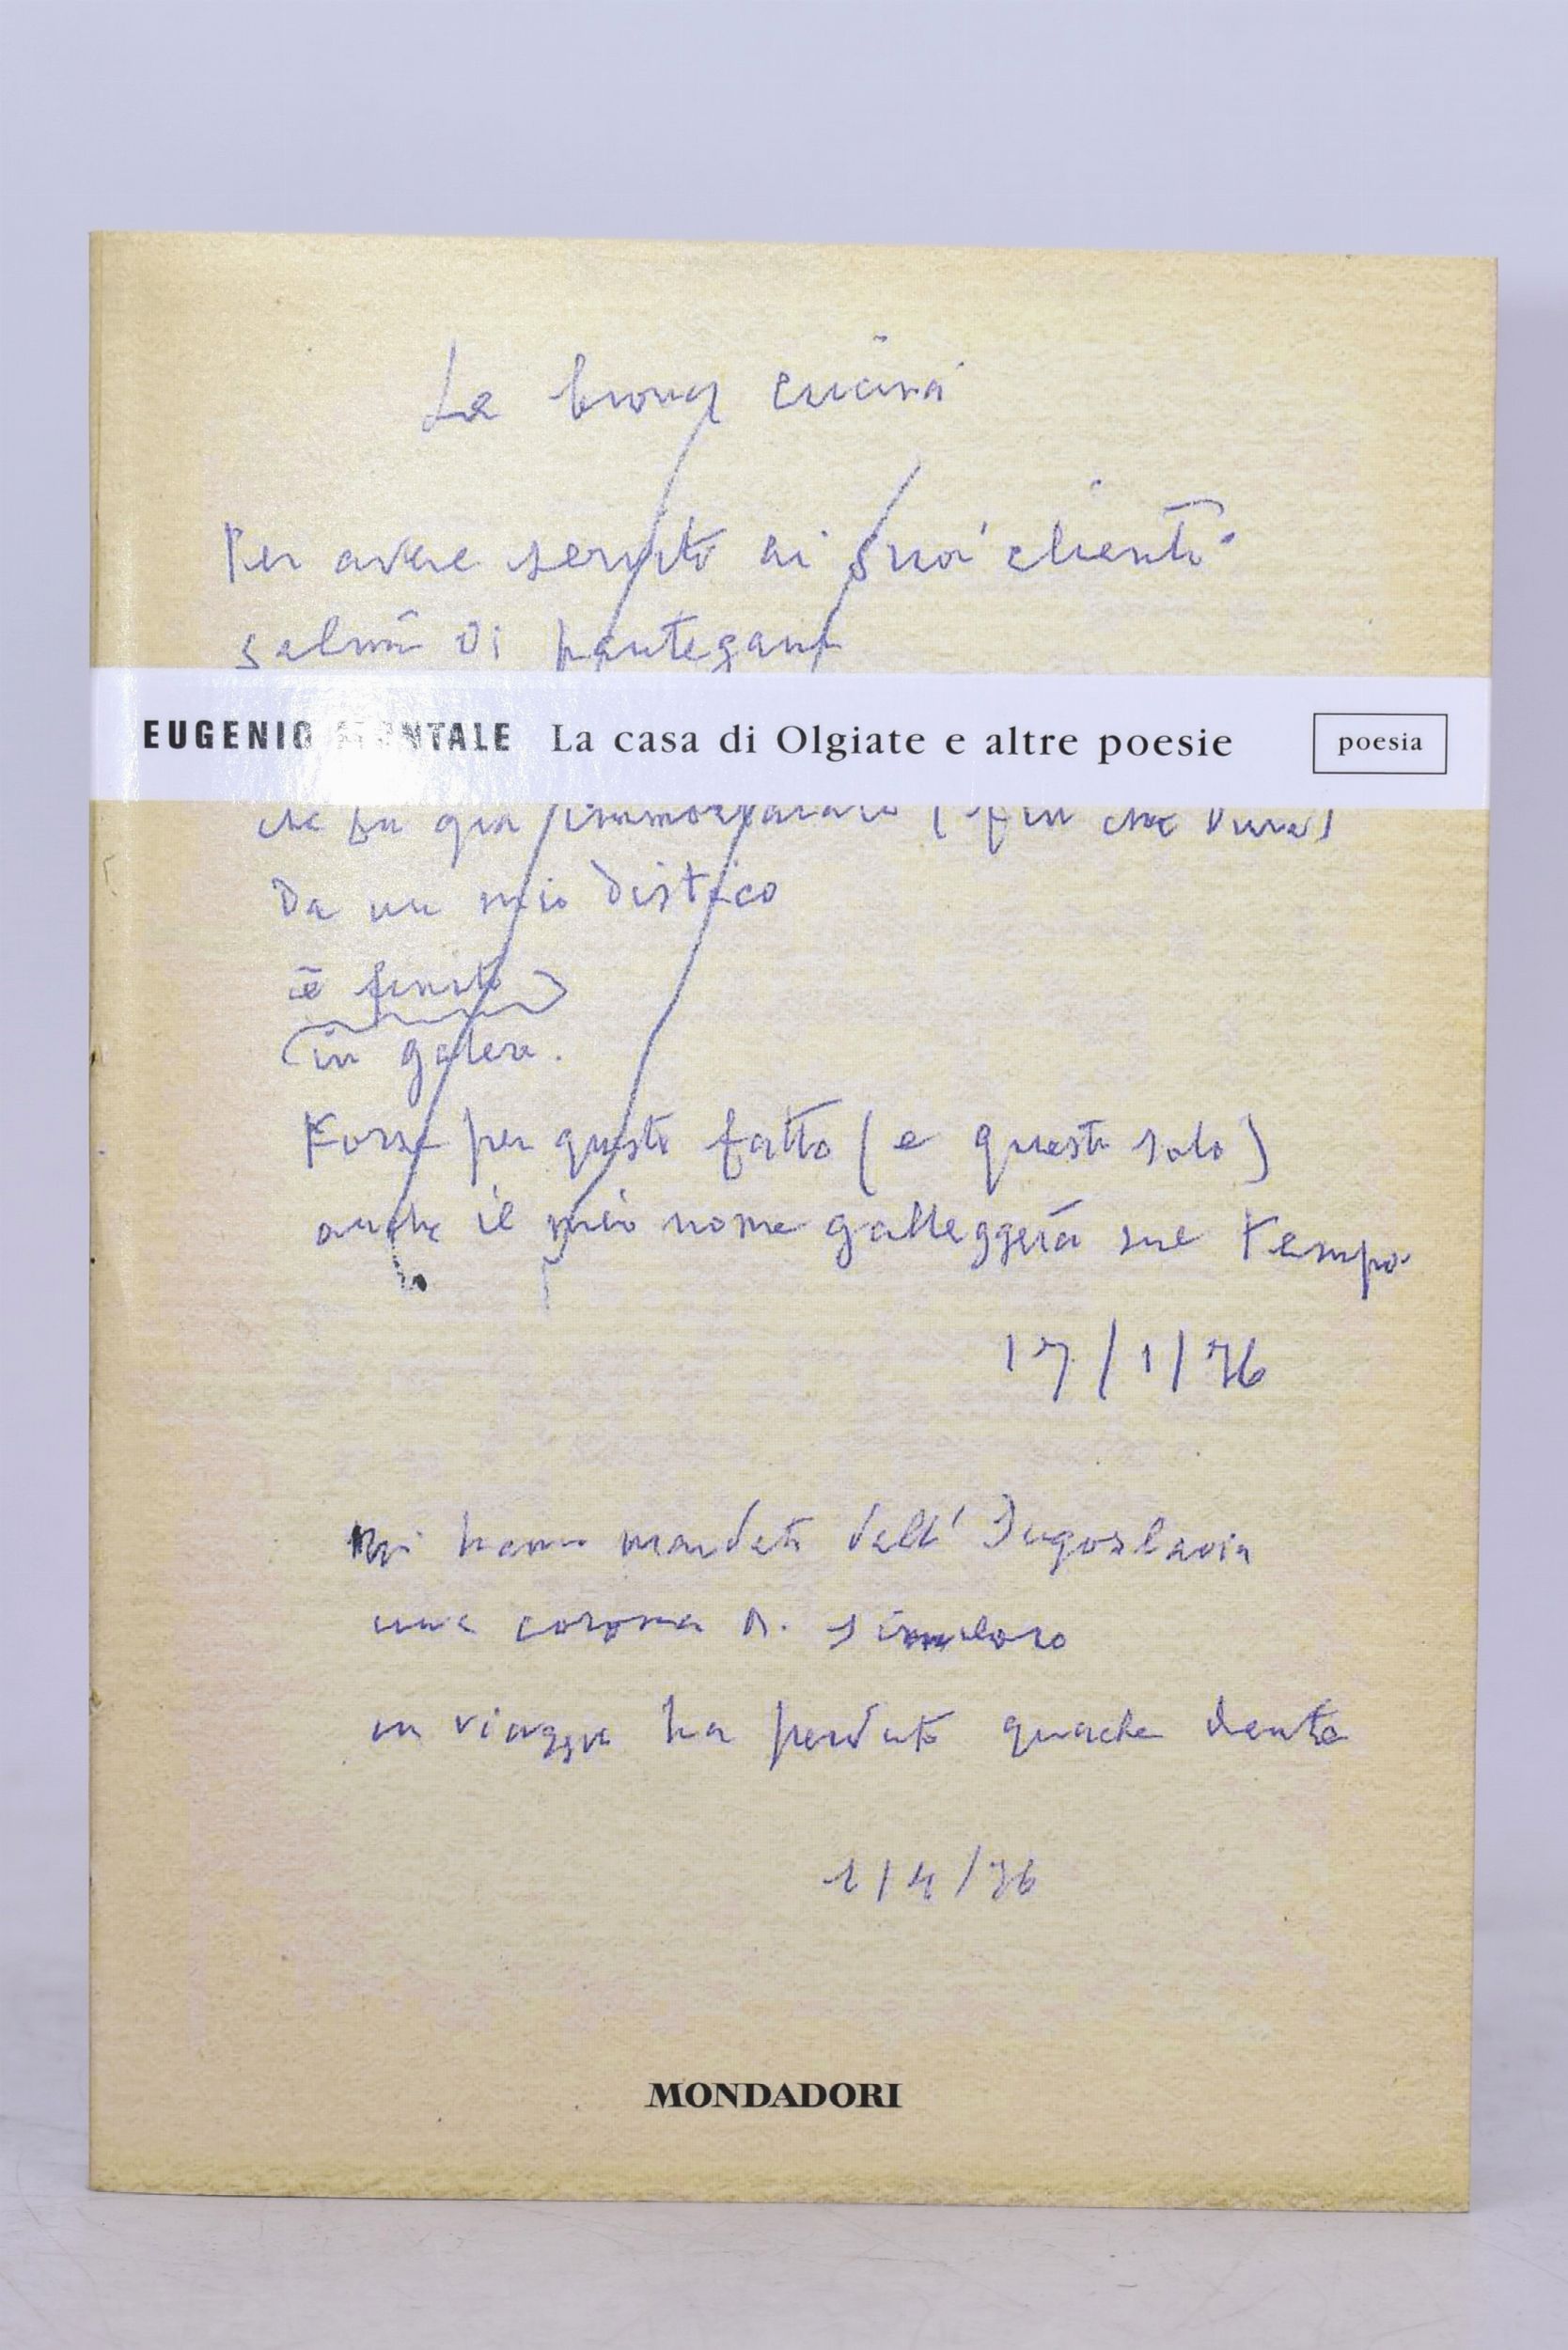 La buona cucina
Per avere servito ai suoi clienti
salmì di pantegane
EUGENIO MONTALE La casa di Olgiate e altre poesie poesia
che fu già immortalato (fin che dura)
Da un mio distico
è finito
in galera.
Forse per questo fatto (e questo solo)
anche il mio nome galleggerà sul tempo
17/1/76
Mi hanno mandato dall'Jugoslavia
una corona di similoro
in viaggio ha perduto qualche dente
1/4/76
MONDADORI